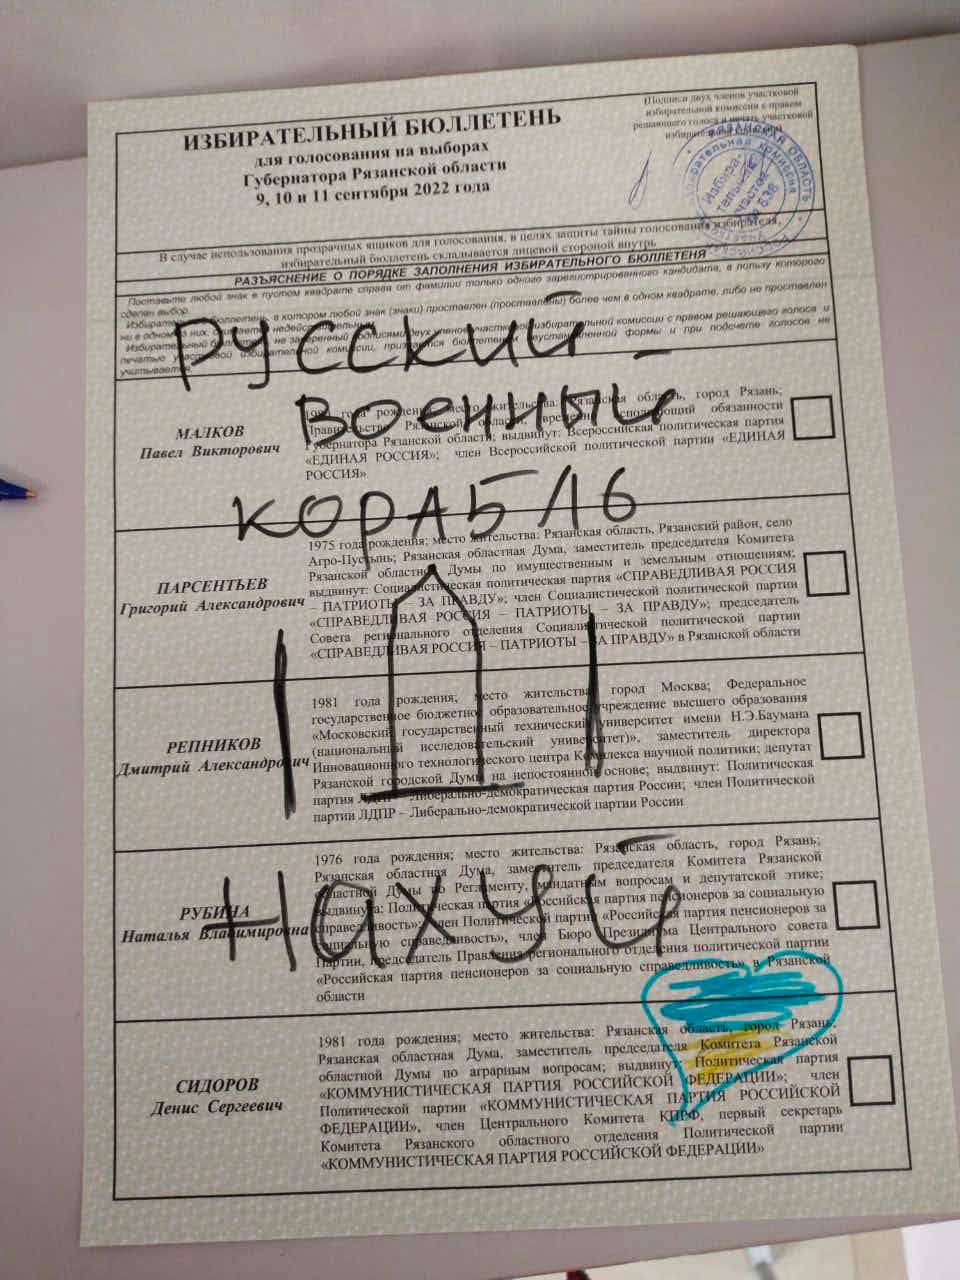 ИЗБИРАТЕЛЬНЫЙ БЮЛЛЕТЕНЬ
для голосования на выборах
Губернатора Рязанской области
9, 10 и 11 сентября 2022 года
(Подписи двух членов участковой
избирательной комиссии с правом
решающего голоса и печать участковой
избирательной комиссии)
РЯЗАНСКАЯ ОБЛАСТЬ
Избира-
тельный
участок
№ 638
В случае использования прозрачных ящиков для голосования, в целях защиты тайны голосования избирателя,
избирательный бюллетень складывается лицевой стороной внутрь
РАЗЪЯСНЕНИЕ О ПОРЯДКЕ ЗАПОЛНЕНИЯ ИЗБИРАТЕЛЬНОГО БЮЛЛЕТЕНЯ
Поставьте любой знак в пустом квадрате справа от фамилии только одного зарегистрированного кандидата, в пользу которого
сделан выбор.
Избирательный бюллетень, в котором любой знак (знаки) проставлен (проставлены) более чем в одном квадрате, либо не проставлен
ни в одном из них, считается недействительным.
Избирательный бюллетень, не заверенный подписями двух членов участковой избирательной комиссии с правом решающего голоса и
печатью участковой избирательной комиссии, признается бюллетенем неустановленной формы и при подсчете голосов не
учитывается.
РУССКИЙ -
ВОЕННЫЙ
КОРАБЛЬ
ІДІ
НАХУЙ
МАЛКОВ
Павел Викторович
1980 года рождения; место жительства: Рязанская область, город Рязань;
Правительство Рязанской области, временно исполняющий обязанности
Губернатора Рязанской области; выдвинут: Всероссийская политическая партия
«ЕДИНАЯ РОССИЯ»; член Всероссийской политической партии «ЕДИНАЯ
РОССИЯ»
ПАРСЕНТЬЕВ
Григорий Александрович
1975 года рождения; место жительства: Рязанская область, Рязанский район, село
Агро-Пустынь; Рязанская областная Дума, заместитель председателя Комитета
Рязанской областной Думы по имущественным и земельным отношениям;
выдвинут: Социалистическая политическая партия «СПРАВЕДЛИВАЯ РОССИЯ
– ПАТРИОТЫ – ЗА ПРАВДУ»; член Социалистической политической партии
«СПРАВЕДЛИВАЯ РОССИЯ – ПАТРИОТЫ – ЗА ПРАВДУ»; председатель
Совета регионального отделения Социалистической политической партии
«СПРАВЕДЛИВАЯ РОССИЯ – ПАТРИОТЫ – ЗА ПРАВДУ» в Рязанской области
РЕПНИКОВ
Дмитрий Александрович
1981 года рождения; место жительства: город Москва; Федеральное
государственное бюджетное образовательное учреждение высшего образования
«Московский государственный технический университет имени Н.Э.Баумана
(национальный исследовательский университет)», заместитель директора
Инновационного технологического центра Комплекса научной политики; депутат
Рязанской городской Думы на непостоянной основе; выдвинут: Политическая
партия ЛДПР – Либерально-демократическая партия России; член Политической
партии ЛДПР – Либерально-демократической партии России
РУБИНА
Наталья Владимировна
1976 года рождения; место жительства: Рязанская область, город Рязань;
Рязанская областная Дума, заместитель председателя Комитета Рязанской
областной Думы по Регламенту, мандатным вопросам и депутатской этике;
выдвинута: Политическая партия «Российская партия пенсионеров за социальную
справедливость»; член Политической партии «Российская партия пенсионеров за
социальную справедливость», член Бюро Президиума Центрального совета
Партии, председатель Правления регионального отделения политической партии
«Российская партия пенсионеров за социальную справедливость» в Рязанской
области
СИДОРОВ
Денис Сергеевич
1981 года рождения; место жительства: Рязанская область, город Рязань;
Рязанская областная Дума, заместитель председателя Комитета Рязанской
областной Думы по аграрным вопросам; выдвинут: Политическая партия
«КОММУНИСТИЧЕСКАЯ ПАРТИЯ РОССИЙСКОЙ ФЕДЕРАЦИИ»; член
Политической партии «КОММУНИСТИЧЕСКАЯ ПАРТИЯ РОССИЙСКОЙ
ФЕДЕРАЦИИ», член Центрального Комитета КПРФ, первый секретарь
Комитета Рязанского областного отделения Политической партии
«КОММУНИСТИЧЕСКАЯ ПАРТИЯ РОССИЙСКОЙ ФЕДЕРАЦИИ»